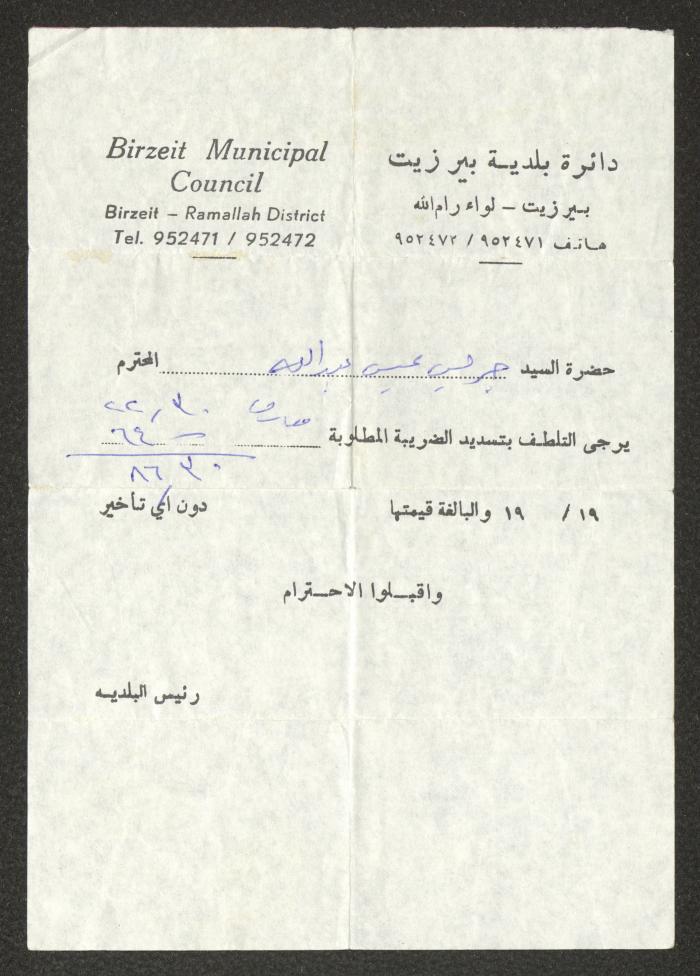 Birzeit Municipal
Council
Birzeit – Ramallah District
Tel. 952471 / 952472
دائرة بلدية بير زيت
بير زيت – لواء رام الله
هاتف ٩٥٢٤٧١ / ٩٥٢٤٧٢
حضرة السيد جريس عيسى عبدالله المحترم
معارف ٢٢,٣٠
يرجى التلطف بتسديد الضريبة المطلوبة ٦٤ –
٨٦/٣٠
١٩ / ١٩ والبالغة قيمتها دون اي تأخير
واقبلوا الاحترام
رئيس البلديه